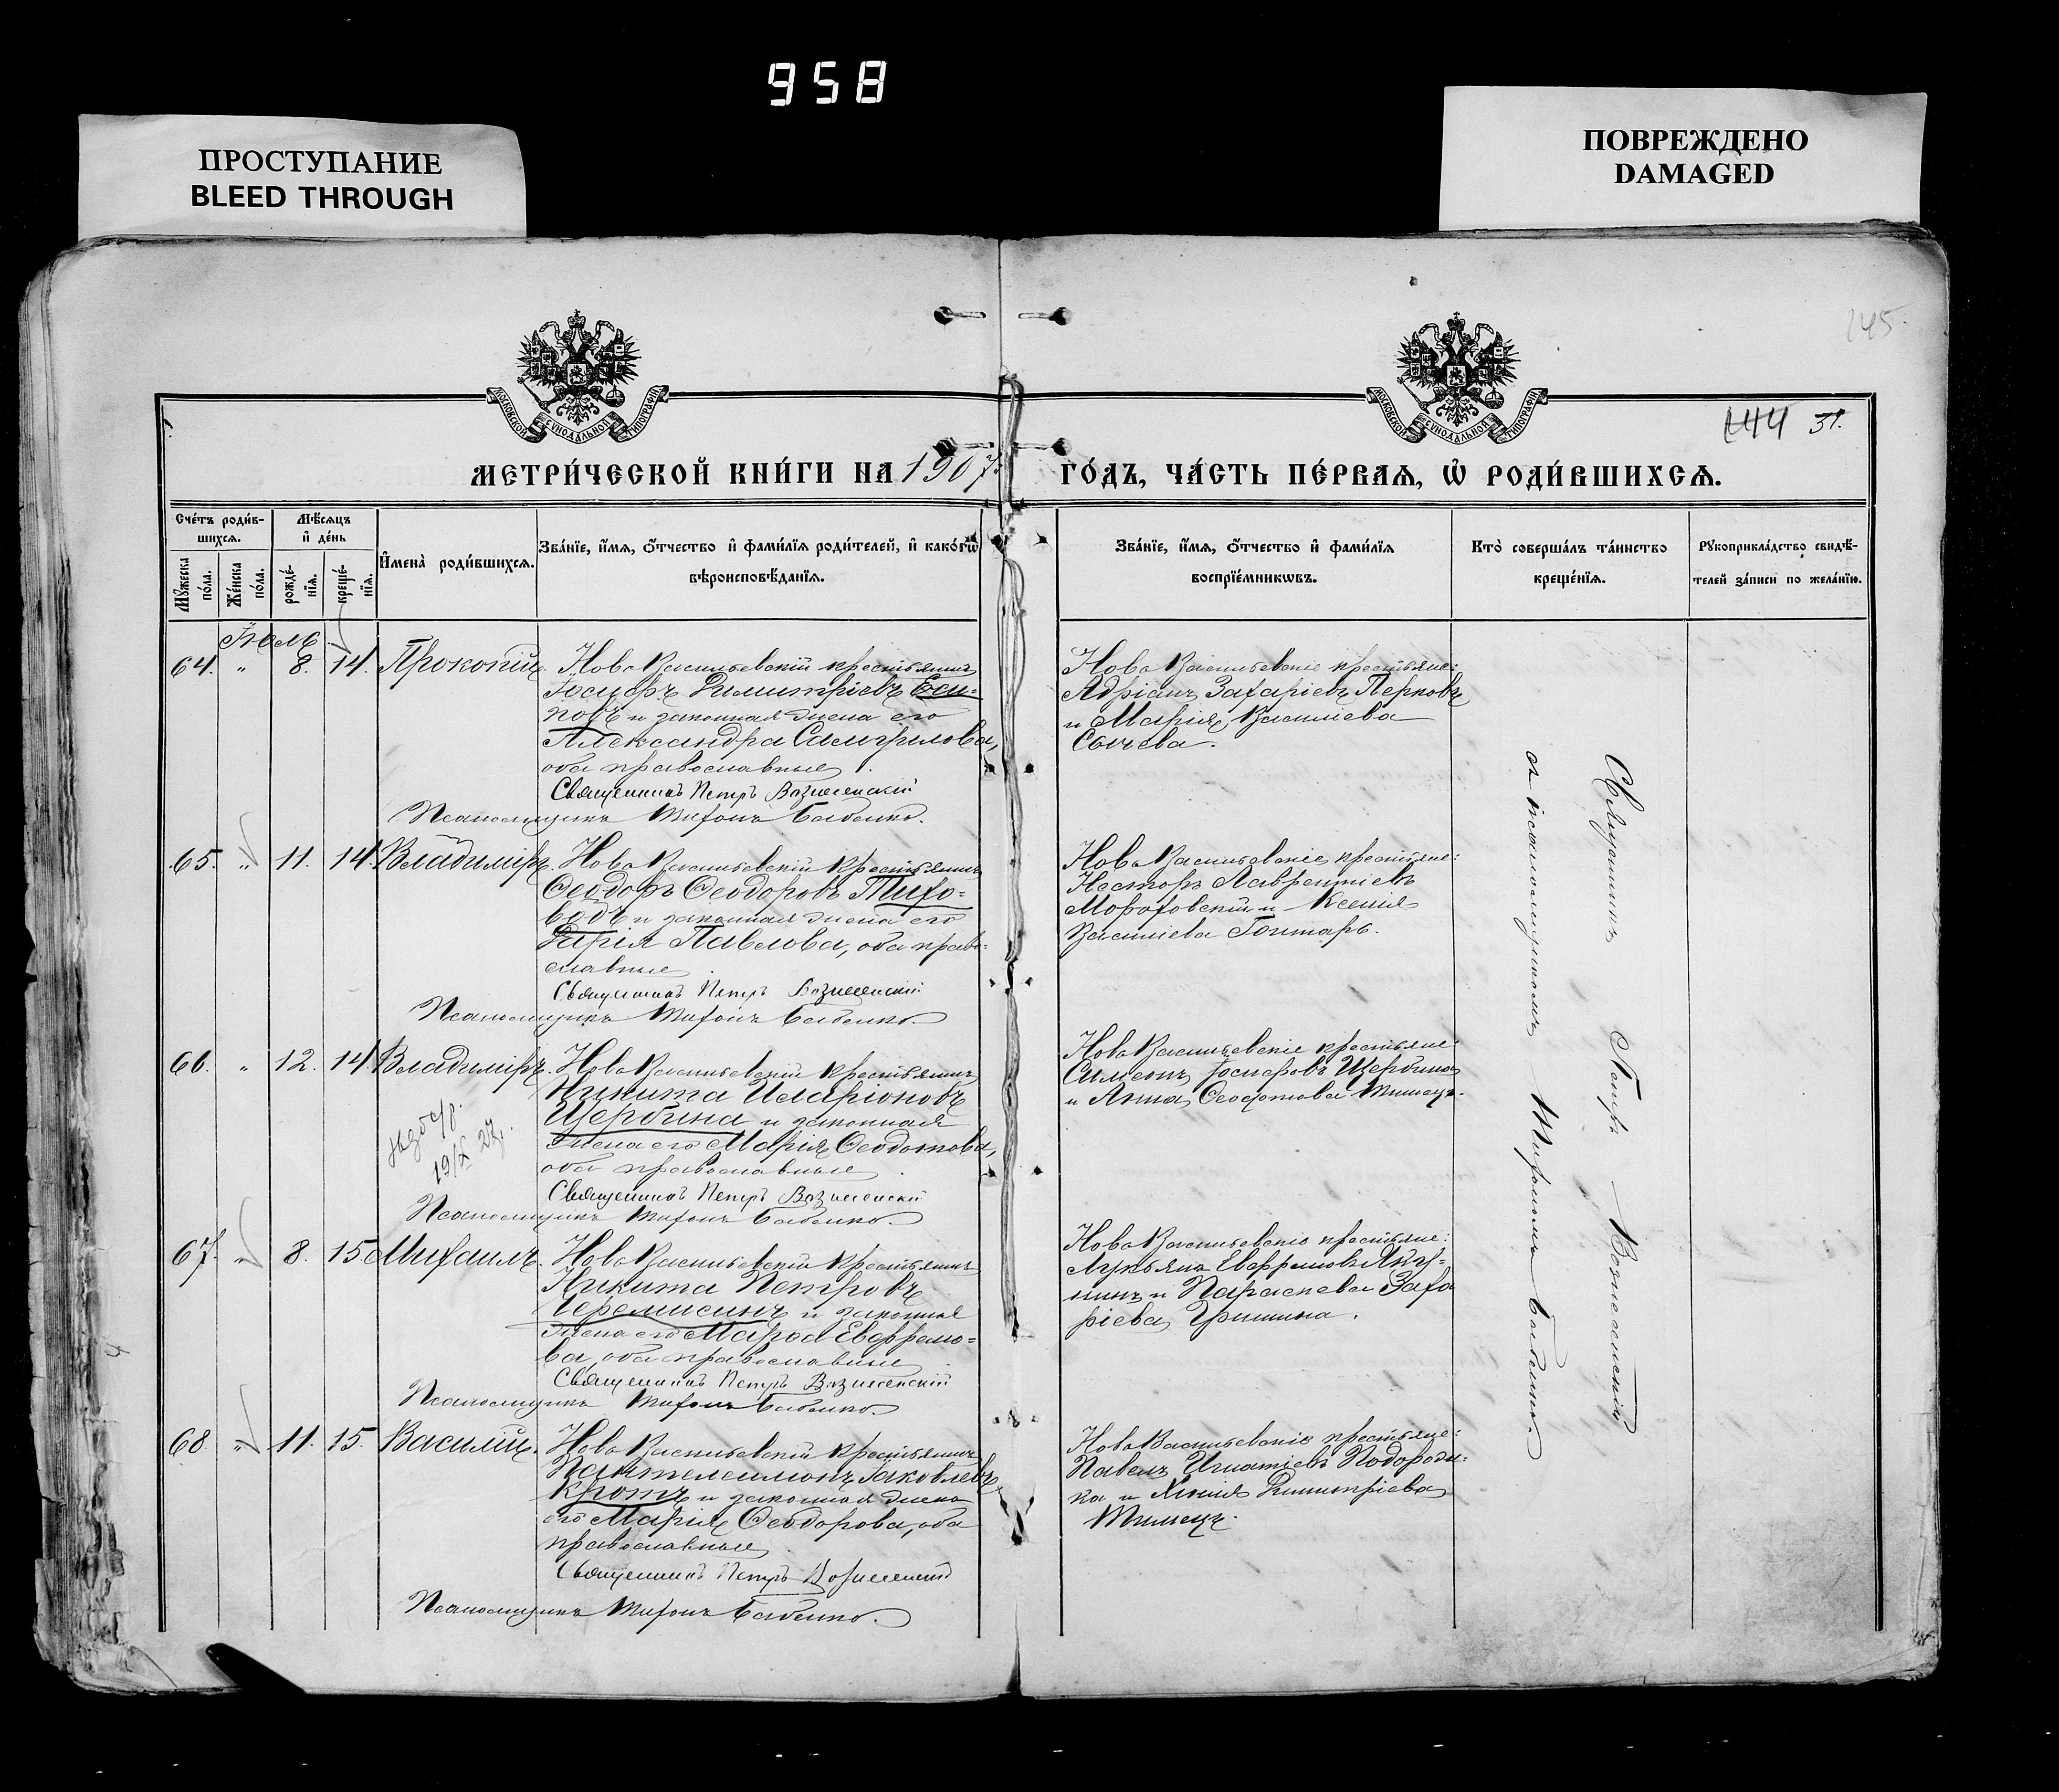 958
ПРОСТУПАНИЕ
BLEED THROUGH
ПОВРЕЖДЕНО
DAMAGED
145.
МОСКОВСКОЙ СѴНОДАЛЬНОЙ ТИПОГРАФІИ
МОСКОВСКОЙ СѴНОДАЛЬНОЙ ТИПОГРАФІИ
144 31.
МЕТРИ́ЧЕСКОЙ КНИ́ГИ НА 1907
ГО́ДЪ, ЧА́СТЬ ПЕ́РВАѦ, Ѡ҆ РОДИ́ВШИХСѦ.
Сче́тъ роди́в-
шихсѧ.
Мѣ́сѧцъ
и҆ де́нь
Мꙋ́жеска по́ла.
Же́нска по́ла.
рожде́-
нїѧ.
креще́-
нїѧ.
И҆мена̀ роди́вшихсѧ.
Зва́нїе, и҆́мѧ, ѻ҆́тчество и҆ фами́лїѧ роди́телей, и҆ како́гѡ
вѣроисповѣ́данїѧ.
Зва́нїе, и҆́мѧ, ѻ҆́тчество и҆ фами́лїѧ
воспрїе́мникѡвъ.
Кто̀ соверша́лъ та́инство
креще́нїѧ.
Рꙋкоприкла́дство свидѣ́-
телей за́писи по жела́нїю.
Іюль
64. " 8. 14. Прокопій. НовоВасильевскій крестьянинъ
Іосифъ Димитріевъ Еси-
повъ и законная жена его
Александра Самуилова,
оба православные.
Священникъ Петръ Вознесенскій
Псаломщикъ Тихонъ Бабенко.
НовоВасильевскіе крестьяне:
Адріанъ Захаріевъ Перковъ
и Марія Василіева
Сычева.
65. " 11. 14. Владиміръ. НовоВасильевскій крестьянинъ
Ѳеодоръ Ѳеодоровъ Тихо-
водъ и законная жена его
Дарія Павлова, оба право-
славные.
Священникъ Петръ Вознесенскій
Псаломщикъ Тихонъ Бабенко.
НовоВасильевскіе крестьяне:
Несторъ Лаврентіевъ
Мораховскій и Ксенія
Василіева Гонтарь.
66. " 12. 14. Владиміръ. НовоВасильевскій крестьянинъ
Никита Иларіоновъ
Щербина и законная
жена его Марія Ѳеодотова,
оба православные.
Священникъ Петръ Вознесенскій
Псаломщикъ Тихонъ Бабенко.
19/X 27.
НовоВасильевскіе крестьяне:
Симеонъ Іосифовъ Щербина
и Анна Ѳеодотова Тимецъ.
67. " 8. 15. Михаилъ. НовоВасильевскій крестьянинъ
Никита Петровъ
Черемисинъ и законная
жена его Марѳа Евфремо-
ва, оба православные
Священникъ Петръ Вознесенскій
Псаломщикъ Тихонъ Бабенко.
НовоВасильевскіе крестьяне:
Лукьянъ Евфремовъ
и Параскева Заха
ріева Гришина.
68. " 11. 15. Василій. НовоВасильевскій крестьянинъ
Пантелеимонъ Іаковлевъ
Кротъ и законная жена
его Марія Ѳеодорова, оба
православные.
Священникъ Петръ Вознесенскій
Псаломщикъ Тихонъ Бабенко.
НовоВасильевскіе крестьяне:
Павелъ Игнатіевъ Подороди-
ка и Ксенія Димитріева
Тимецъ.
Священникъ Петръ Вознесенскій
съ псаломщикомъ Тихономъ Бабенко.